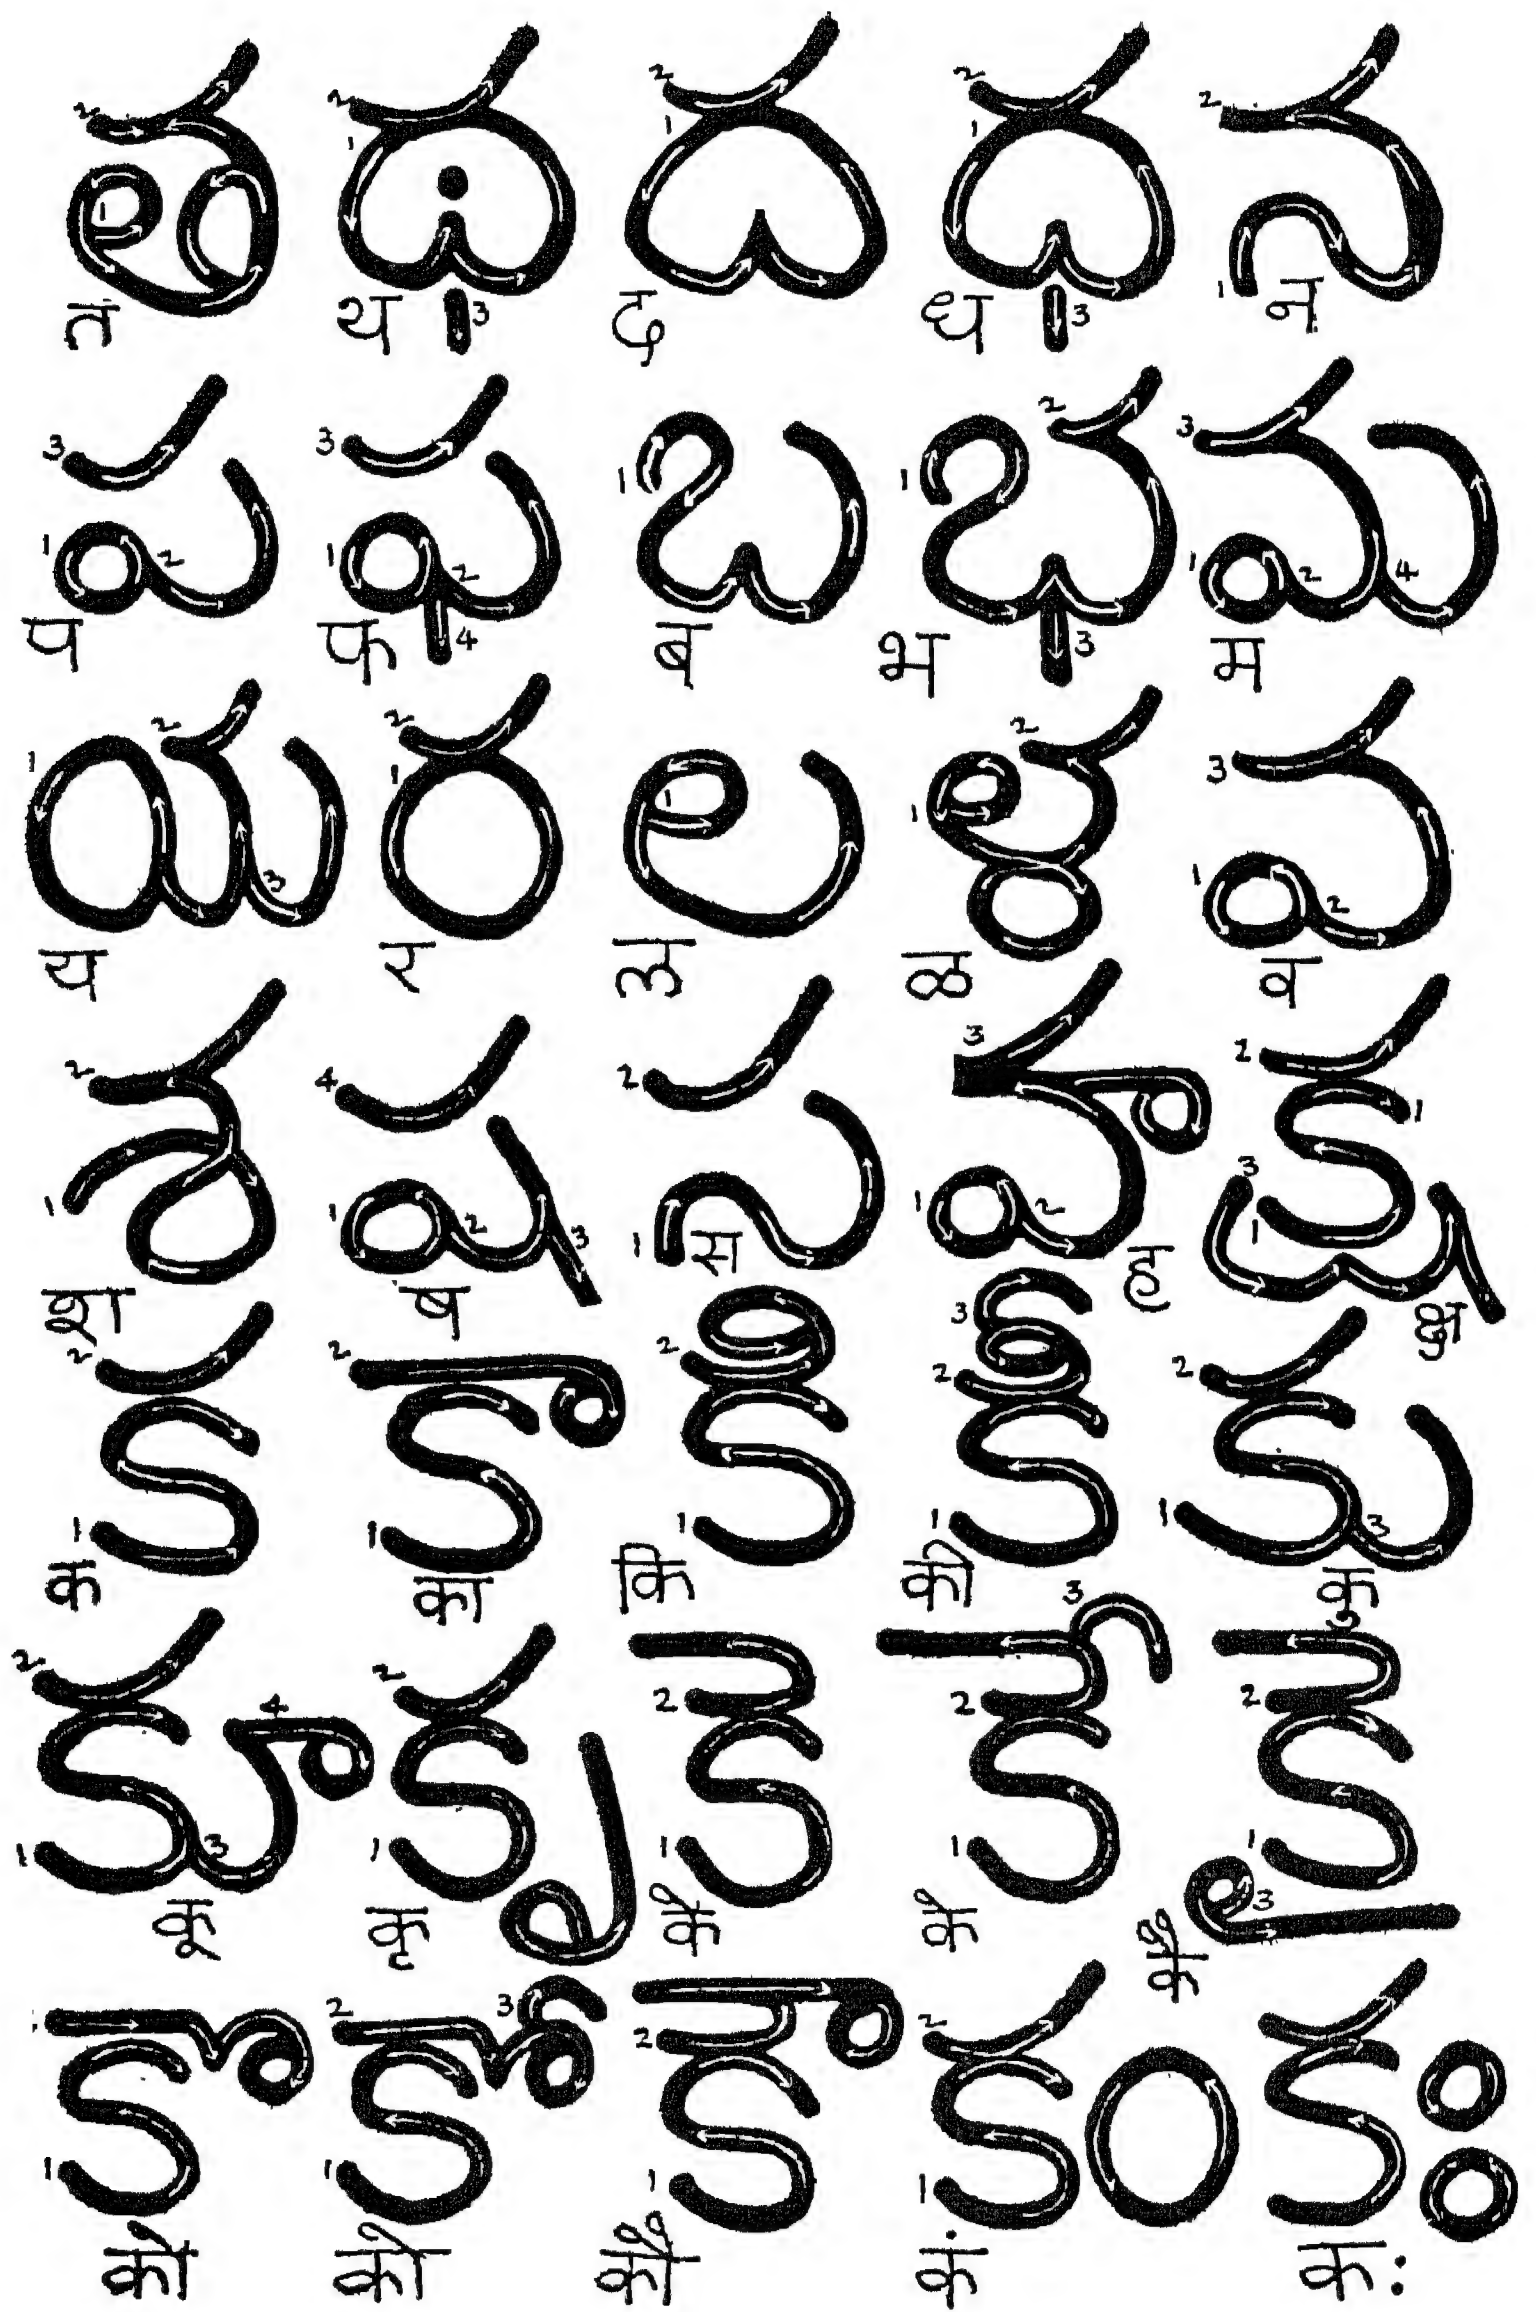 త థ ద ధ న
त थ द ध न
ప ఫ బ భ మ
प फ ब भ म
య ర ల ళ వ
य र ल ळ व
శ ష స హ క్ష
श ष स ह क्ष
క కా కి కీ కు
क का कि की कु
కూ కృ కె కే కై
कू कृ कॆ के कै
కొ కో కౌ కం కః
को को कौ कं कः